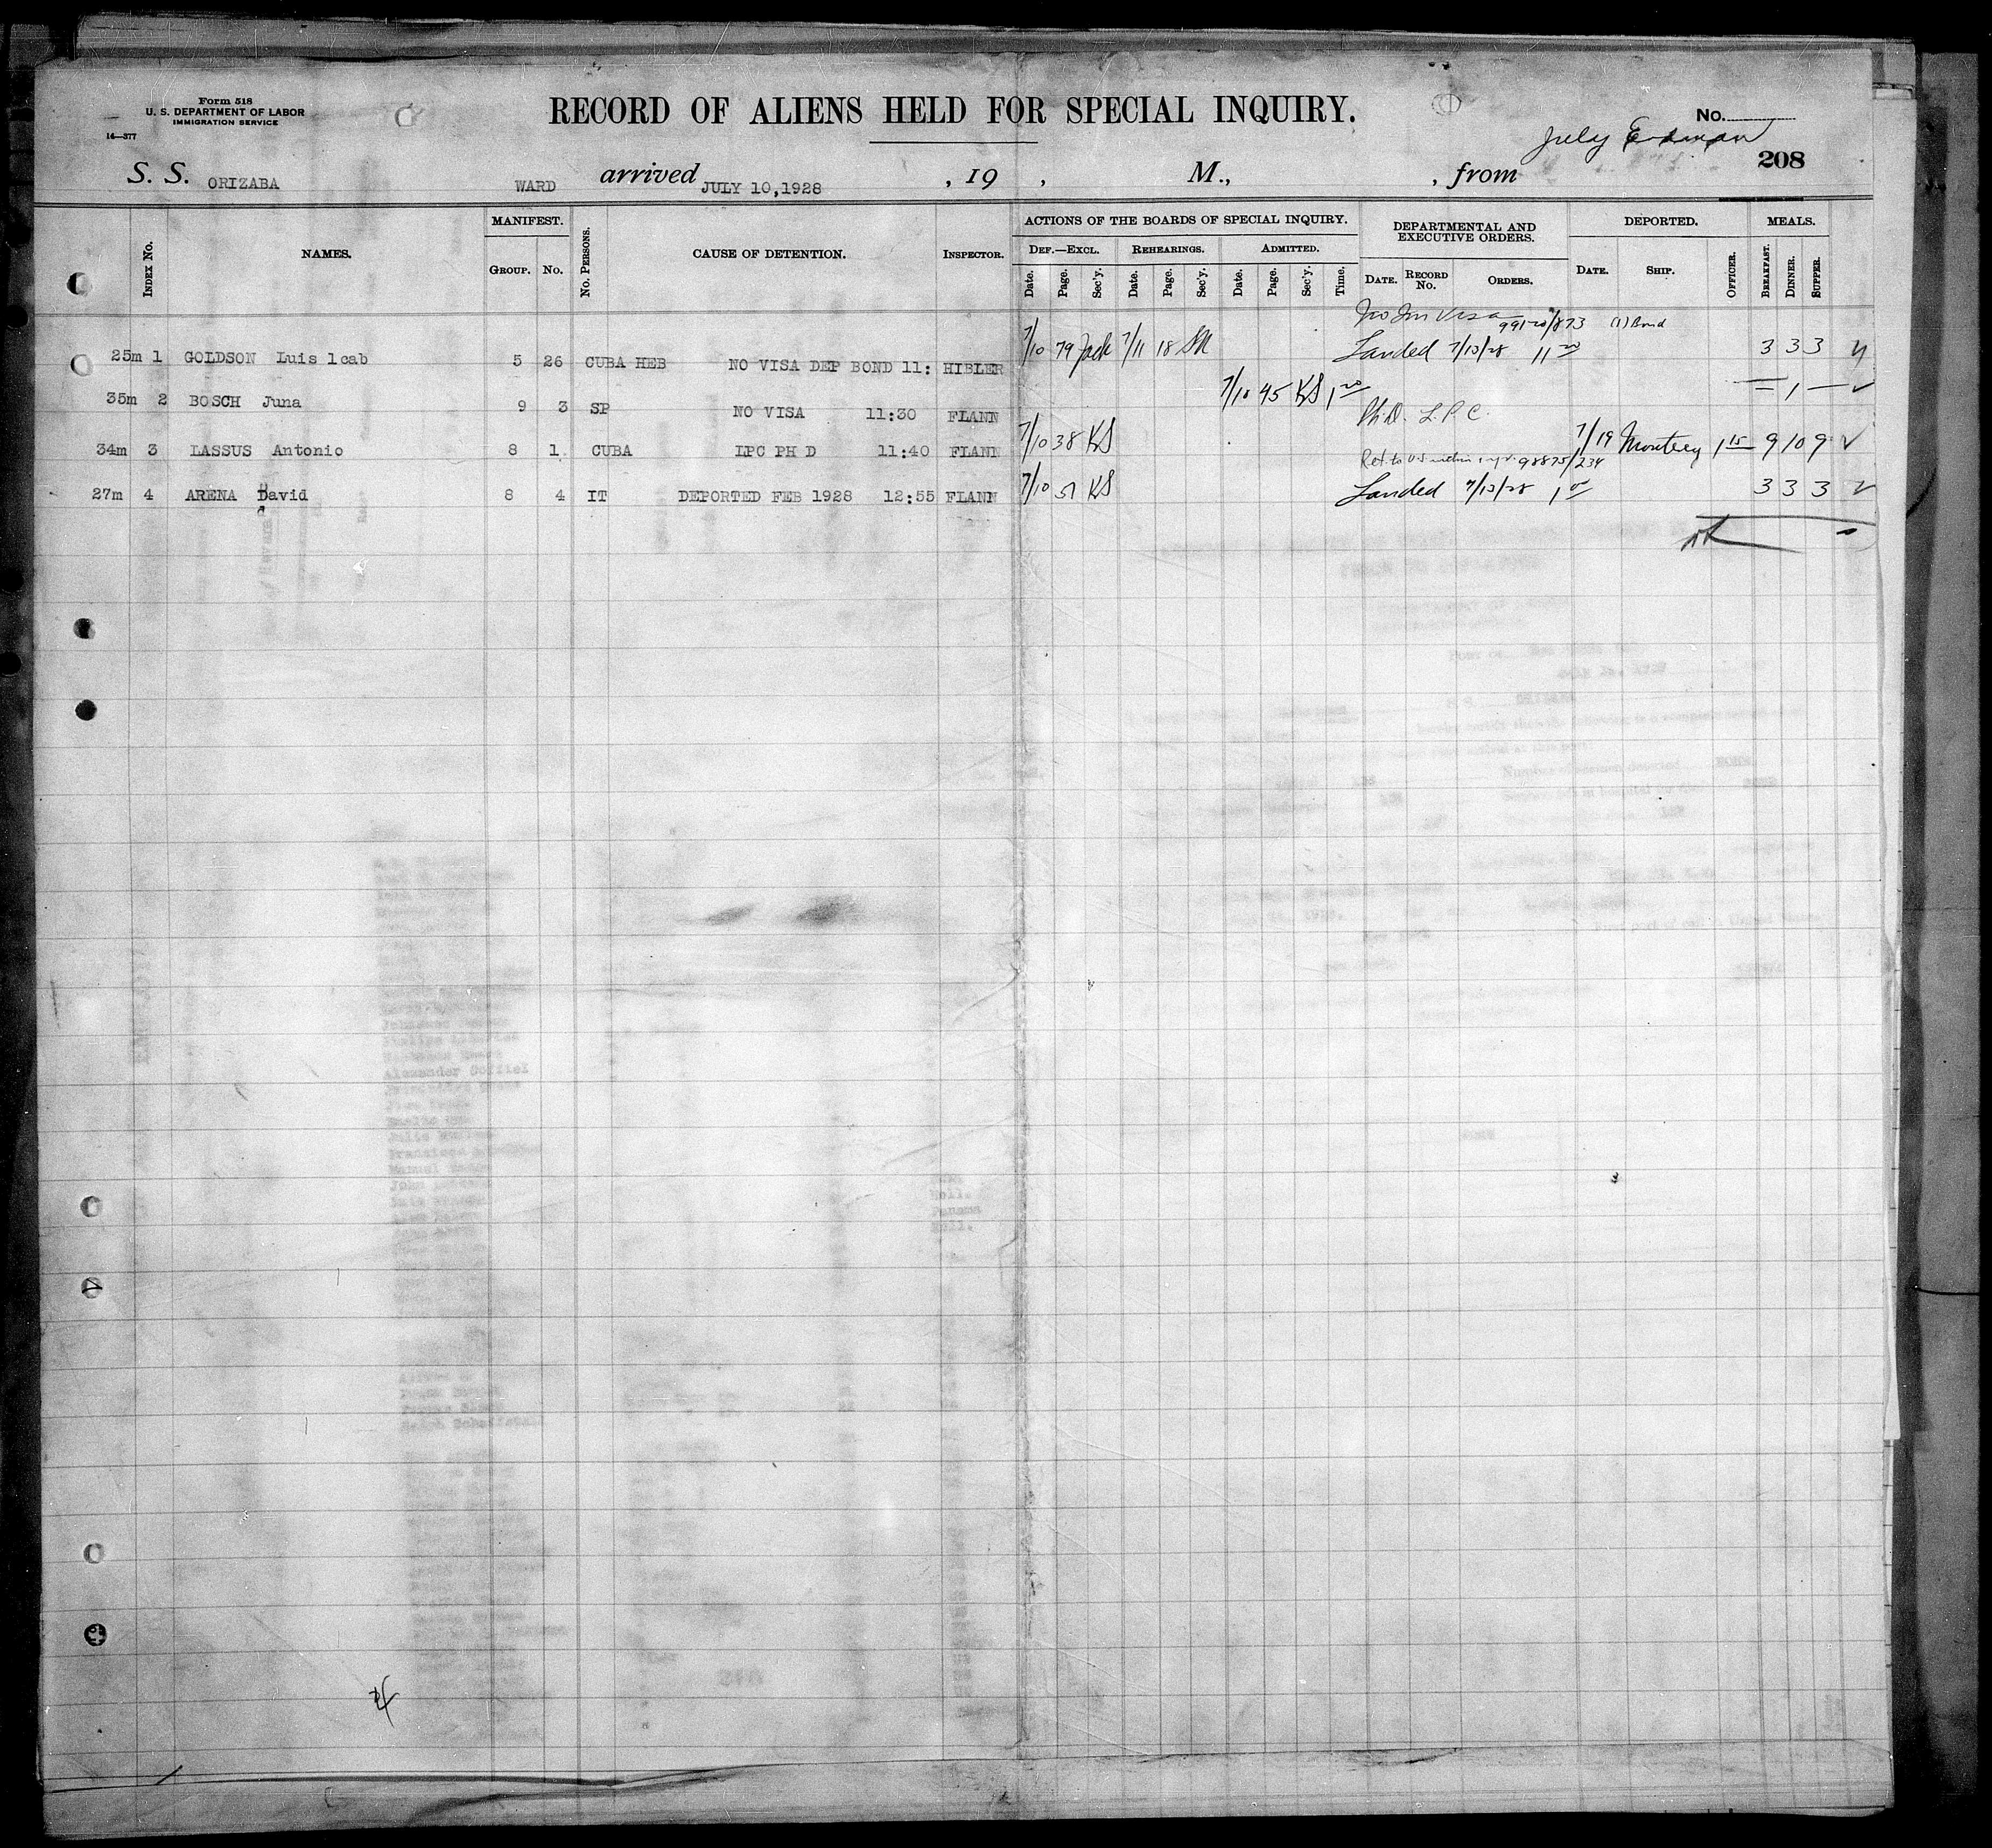 Form 518
U. S. DEPARTMENT OF LABOR
IMMIGRATION SERVICE
14—377
RECORD OF ALIENS HELD FOR SPECIAL INQUIRY.
No.
July
208
S. S. ORIZABA WARD arrived JULY 10,1928 , 19 , M., , from
Index No. NAMES. MANIFEST. Group. No. No. Persons. CAUSE OF DETENTION. Inspector. ACTIONS OF THE BOARDS OF SPECIAL INQUIRY. Def.—Excl. Date. Page. Sec'y. Rehearings. Date. Page. Sec'y. Admitted. Date. Page. Sec'y. Time. DEPARTMENTAL AND EXECUTIVE ORDERS. Date. Record No. Orders. DEPORTED. Date. Ship. Officer. MEALS. Breakfast. Dinner. Supper.
No Im Visa 99120/873 (1) Bond
25m 1 GOLDSON Luis 1cab 5 26 CUBA HEB NO VISA DEP BOND 11: HIBLER 7/10 79 Jack 7/11 18 Landed 7/13/28 11 20 3 3 3
35m 2 BOSCH Juna 9 3 SP NO VISA 11:30 FLANN 7/10 45 KS 1 20 — 1 —
Ph.D. L.P.C.
34m 3 LASSUS Antonio 8 1 CUBA LPC PH D 11:40 FLANN 7/10 38 KS 7/19 Monterey 1 15 9 10 9
Ret. to U S within 1 yr. 98875/234
27m 4 ARENA David 8 4 IT DEPORTED FEB 1928 12:55 FLANN 7/10 51 KS Landed 7/13/28 1 3 3 3